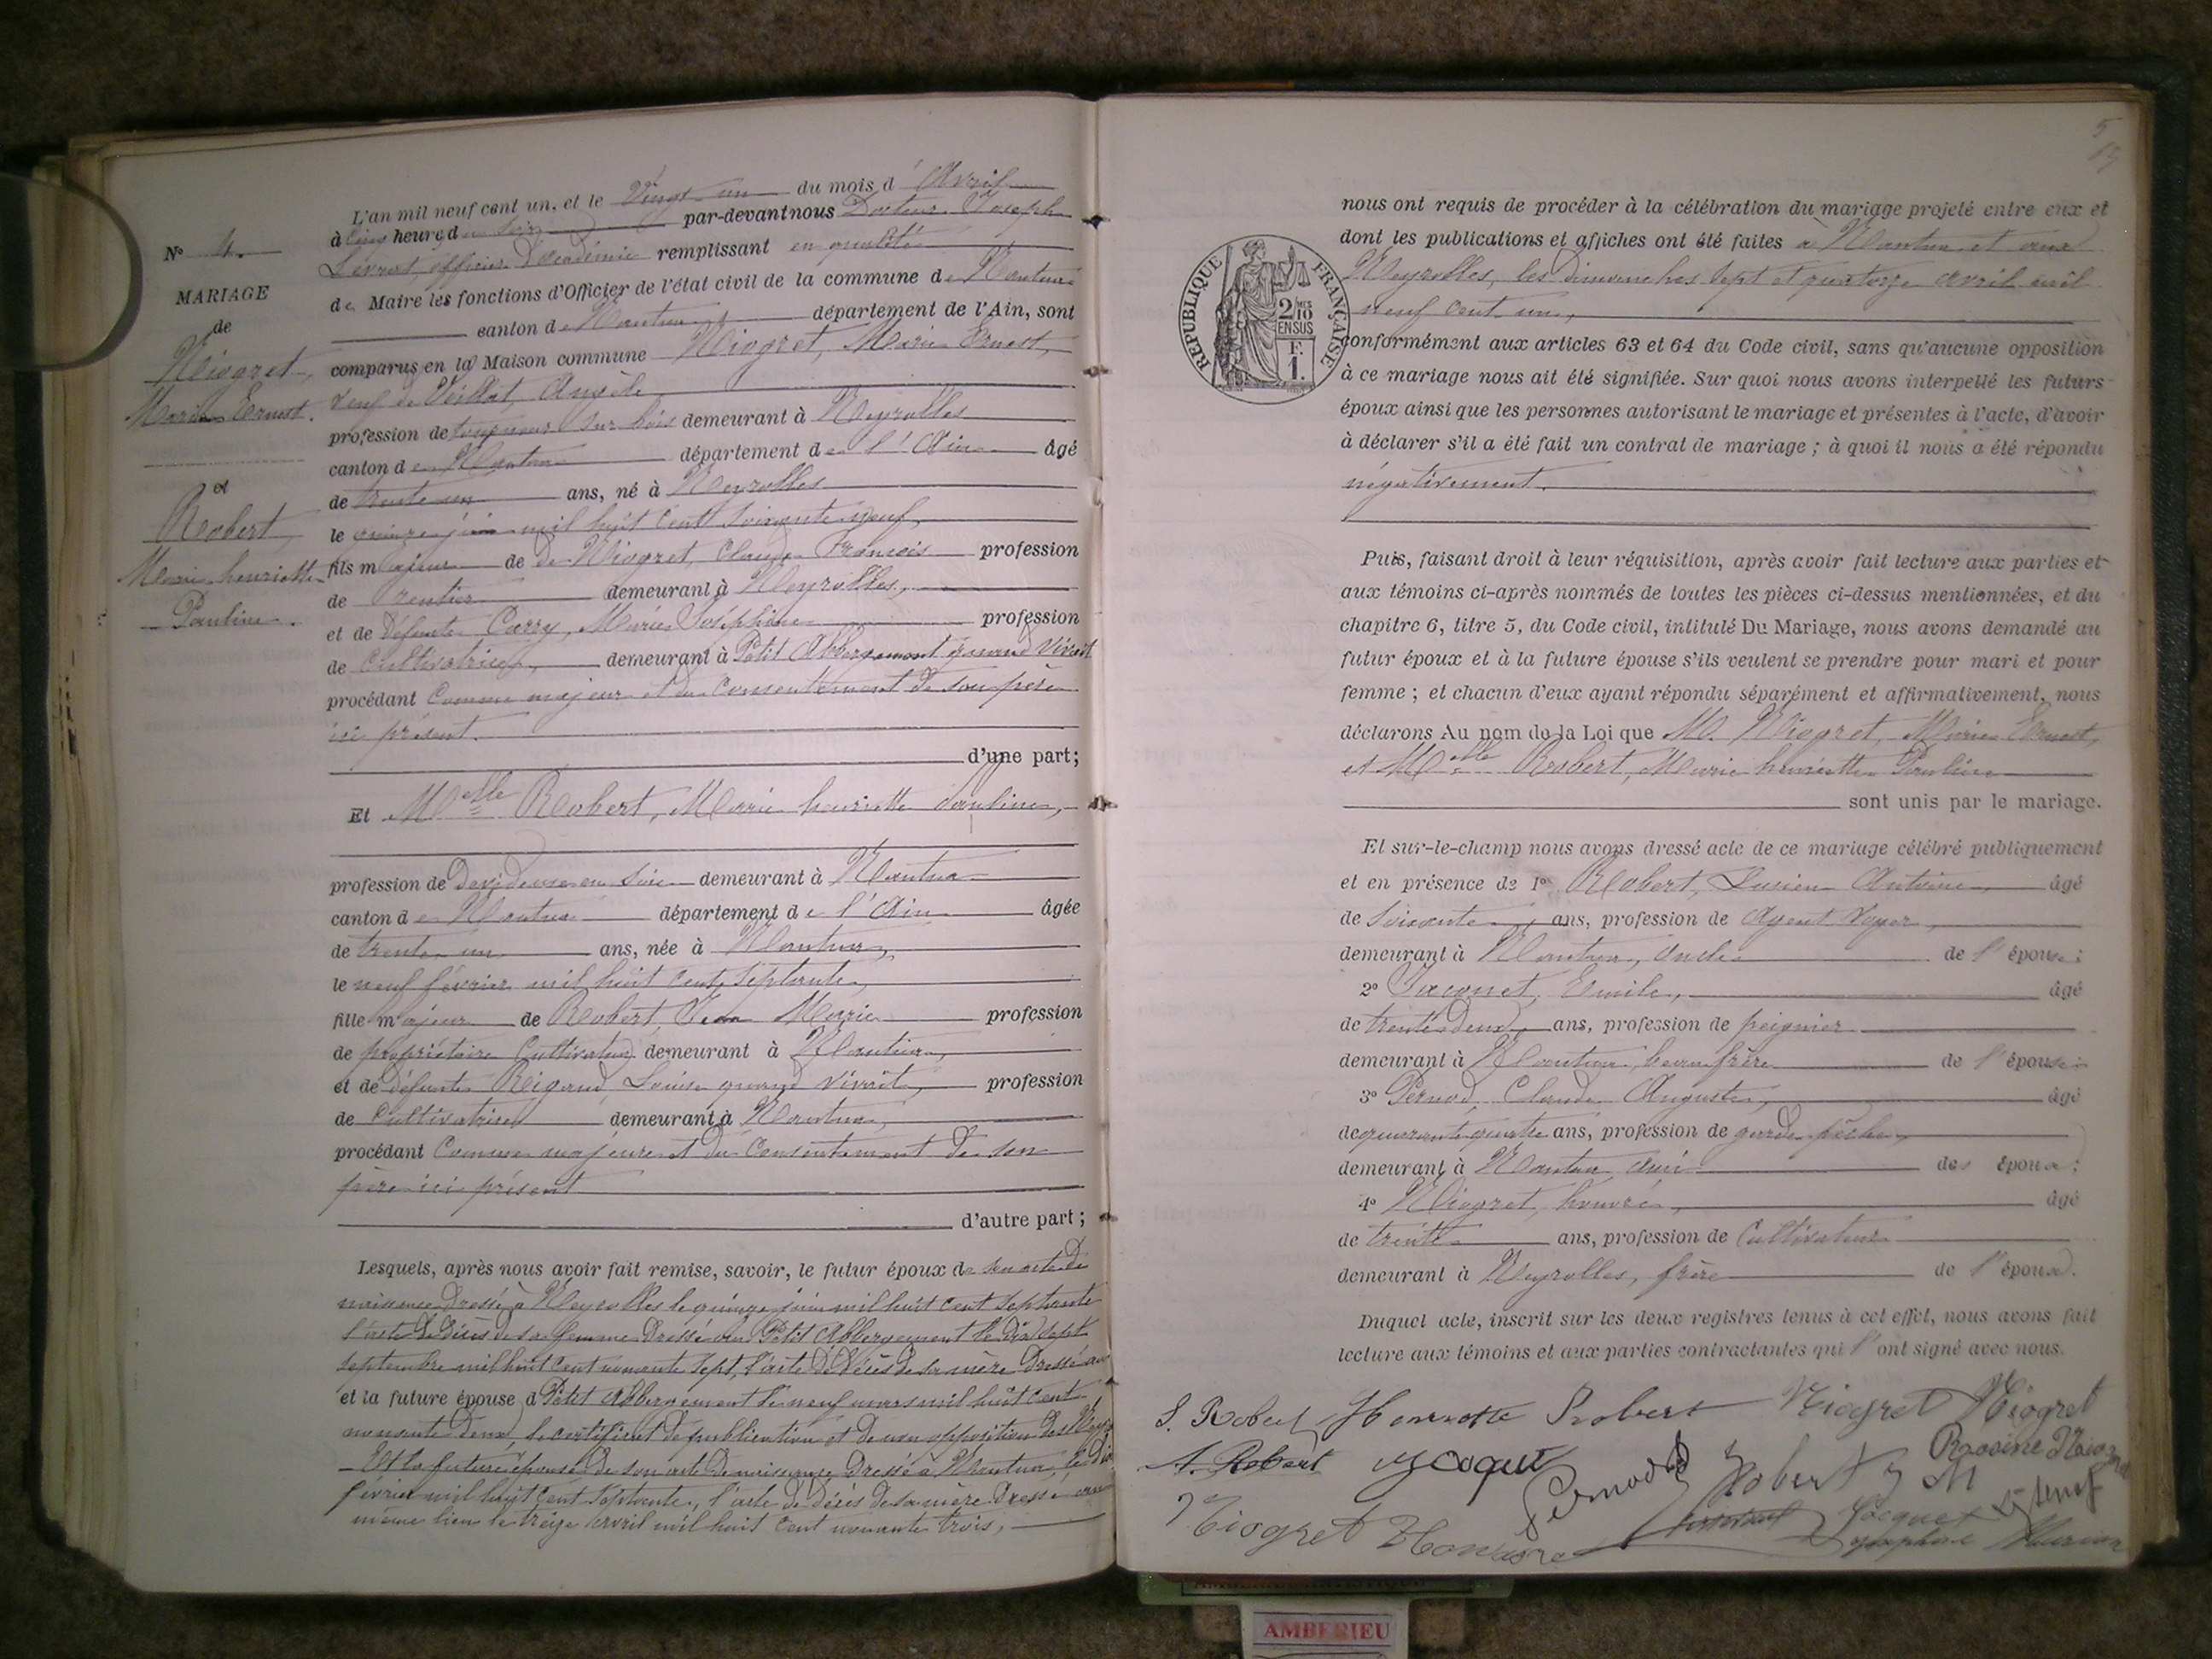 N° 4.
MARIAGE
de
Niogret,
Marie Ernest.
et
Robert,
Marie henriette
Pauline.
L'an mil neuf cent un, et le Vingt un du mois d'Avril
à cinq heures du Soir par-devant nous Docteur Joseph
Sévrat, officier d'académie remplissant en qualité
de Maire les fonctions d'Officier de l'état civil de la commune de Nantua
canton de Nantua, département de l'Ain, sont
comparus en la Maison commune Niogret, Marie Ernest,
veuf de Veillat Angèle
profession de tourneur sur bois demeurant à Neyrolles
canton de Nantua département de l'Ain âgé
de trente un ans, né à Neyrolles
le quinze juin mil huit cent soixante neuf,
fils majeur de de Niogret Claude François profession
de rentier demeurant à Neyrolles,
et de Défunte Carry, Marie Joséphine profession
de Cultivatrice, demeurant à Petit Abbergement quand Vivait
procédant Comme majeur et du Consentement de son père
ici présent.
d'une part;
Et Melle Robert, Marie henriette Pauline,
profession de Dévideuse en Soie demeurant à Nantua
canton de Nantua département de l'Ain âgée
de trente un ans, née à Nantua,
le neuf février mil huit cent septante,
fille majeure de Robert Jean Marie profession
de propriétaire Cultivateur demeurant à Nantua,
et de défunte Reigaud, Louise quand vivait, profession
de Cultivatrice demeurant à Nantua,
procédant Comme majeure et du Consentement de son
père ici présent
d'autre part;
Lesquels, après nous avoir fait remise, savoir, le futur époux de son acte de
naissance Dressé à Neyrolles le quinze juin mil huit cent septante
l'acte de décès de sa femme Dressé au Petit Abbergement le dix sept
septembre mil huit cent nonante sept, l'acte de décès de sa mère Dressé au
et la future épouse d Petit Abbergement le neuf mars mil huit cent
nonante deux, le certificat de publication et de non opposition des Neyr
Et la future épouse de son acte de naissance Dressé à Nantua, le dix
février mil huit cent septante, l'acte de décès de sa mère Dressé au
même lieu le treize avril mil huit cent nonante trois,
5
REPUBLIQUE FRANÇAISE
2/10 EN SUS
F. 1.
nous ont requis de procéder à la célébration du mariage projeté entre eux et
dont les publications et affiches ont été faites à Nantua et aux
Neyrolles, les dimanches sept et quatorze avril mil
neuf cent un,
conformément aux articles 63 et 64 du Code civil, sans qu'aucune opposition
à ce mariage nous ait été signifiée. Sur quoi nous avons interpellé les futurs
époux ainsi que les personnes autorisant le mariage et présentes à l'acte, d'avoir
à déclarer s'il a été fait un contrat de mariage ; à quoi il nous a été répondu
négativement.
Puis, faisant droit à leur réquisition, après avoir fait lecture aux parties et
aux témoins ci-après nommés de toutes les pièces ci-dessus mentionnées, et du
chapitre 6, titre 5, du Code civil, intitulé Du Mariage, nous avons demandé au
futur époux et à la future épouse s'ils veulent se prendre pour mari et pour
femme ; et chacun d'eux ayant répondu séparément et affirmativement, nous
déclarons Au nom de la Loi que M. Niogret, Marie Ernest,
et Melle Robert, Marie henriette Pauline
sont unis par le mariage.
Et sur-le-champ nous avons dressé acte de ce mariage célébré publiquement
et en présence de 1° Robert, Lucien Antoine, âgé
de soixante, ans, profession de Agent Voyer,
demeurant à Nantua, oncle de l'épouse;
2° Jacquet, Emile, âgé
de trente deux, ans, profession de peignier
demeurant à Nantua, beau frère de l'épouse;
3° Pernod, Claude Auguste, âgé
de quarante quatre ans, profession de garde pêche
demeurant à Nantua ami des époux;
4° Niogret, honoré, âgé
de trente ans, profession de Cultivateur
demeurant à Neyrolles, frère de l'époux.
Duquel acte, inscrit sur les deux registres tenus à cet effet, nous avons fait
lecture aux témoins et aux parties contractantes qui l'ont signé avec nous.
J. Robert Henriette Robert Niogret Niogret
A. Robert Jacquet Pernod Robert M Rosine Niogret
Niogret Honoré Jacquet
AMBERIEU